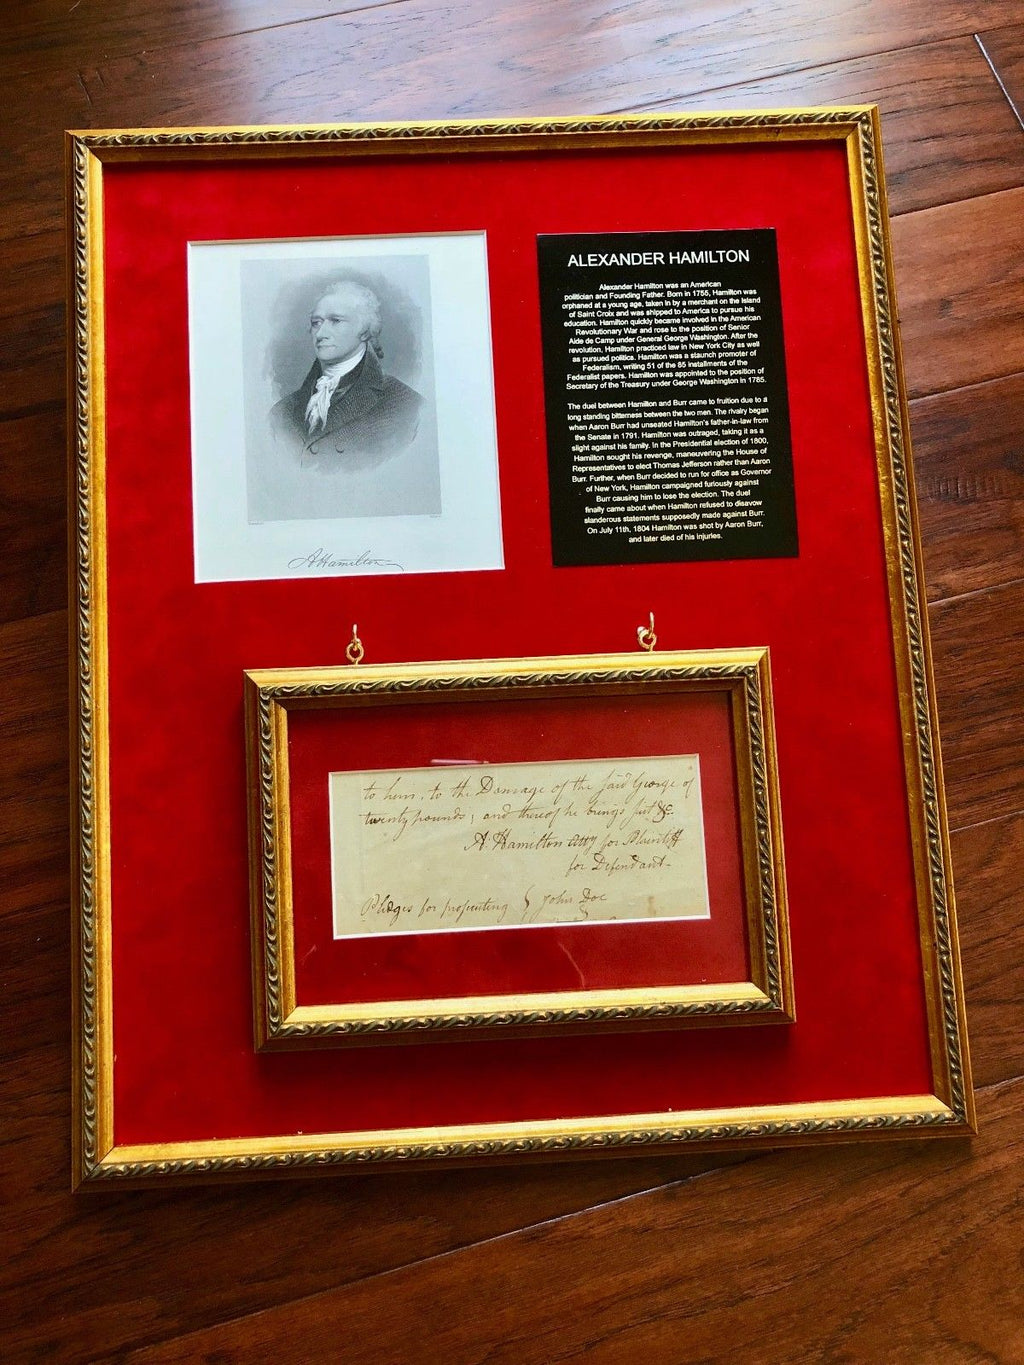 A Hamilton
ALEXANDER HAMILTON
Alexander Hamilton was an American
politician and Founding Father. Born in 1755, Hamilton was
orphaned at a young age, taken in by a merchant on the Island
of Saint Croix and was shipped to America to pursue his
education. Hamilton quickly became involved in the American
Revolutionary War and rose to the position of Senior
Aide de Camp under General George Washington. After the
revolution, Hamilton practiced law in New York City as well
as pursued politics. Hamilton was a staunch promoter of
Federalism, writing 51 of the 85 installments of the
Federalist papers. Hamilton was appointed to the position of
Secretary of the Treasury under George Washington in 1785.
The duel between Hamilton and Burr came to fruition due to a
long standing bitterness between the two men. The rivalry began
when Aaron Burr had unseated Hamilton's father-in-law from
the Senate in 1791. Hamilton was outraged, taking it as a
slight against his family. In the Presidential election of 1800,
Hamilton sought his revenge, maneuvering the House of
Representatives to elect Thomas Jefferson rather than Aaron
Burr. Further, when Burr decided to run for office as Governor
of New York, Hamilton campaigned furiously against
Burr causing him to lose the election. The duel
finally came about when Hamilton refused to disavow
slanderous statements supposedly made against Burr.
On July 11th, 1804 Hamilton was shot by Aaron Burr,
and later died of his injuries.
to him, to the Damage of the said George of
twenty pounds; and thereof he brings suit &c.
A. Hamilton atty for Plaintiff
for Defendant-
Pledges for prosecuting } John Doe